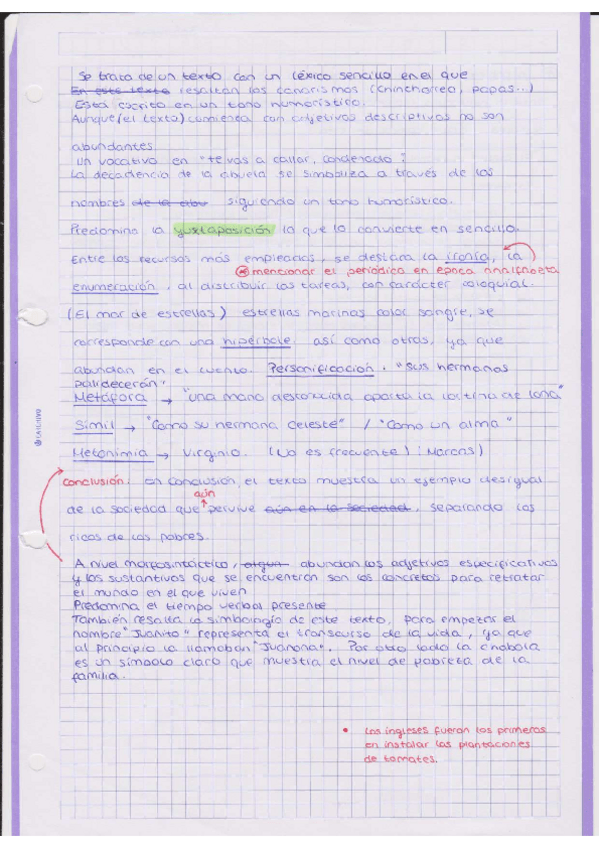 Se trata de un texto con un léxico sencillo en el que
En este texto resaltan los canarismos (chinchorreo, papas...)
Está escrito en un tono humorístico.
Aunque (el texto) comienza con adjetivos descriptivos no son
abundantes
Un vocativo en "te vas a callar, condenado".
La decadencia de la abuela se simboliza a través de los
nombres de la abu siguiendo un tono humorístico.
Predomina la yuxtaposición lo que lo convierte en sencillo.
Entre los recursos más empleados, se destaca la ironía, la
mencionar el periódico en época analfabeta
enumeración, al distribuir las tareas, con carácter coloquial.
(El mar de estrellas) estrellas marinas color sangre, se
corresponde con una hipérbole así como otras, ya que
abundan en el cuento. Personificación. "Sus hermanas
palidecerán"
Metáfora → "una mano descorrida aparta la cortina de lona"
Símil → "Como su hermana celeste" / "Como un alma"
Metonimia → Virginio. (No es frecuente) : Marcos)
Conclusión: En conclusión, el texto muestra un ejemplo desigual
aún
de la sociedad que pervive aún en la sociedad, separando los
ricos de los pobres.
A nivel morfosintáctico, algun abundan los adjetivos especificativos
y los sustantivos que se encuentran son los concretos para retratar
el mundo en el que viven
Predomina el tiempo verbal presente
También resalta la simbología de este texto, para empezar el
nombre "Juanito" representa el transcurso de la vida, ya que
al principio la llamaban "Juanona". Por otro lado la chabola
es un símbolo claro que muestra el nivel de pobreza de la
familia.
• Los ingleses fueron los primeros
en instalar las plantaciones
de tomates.